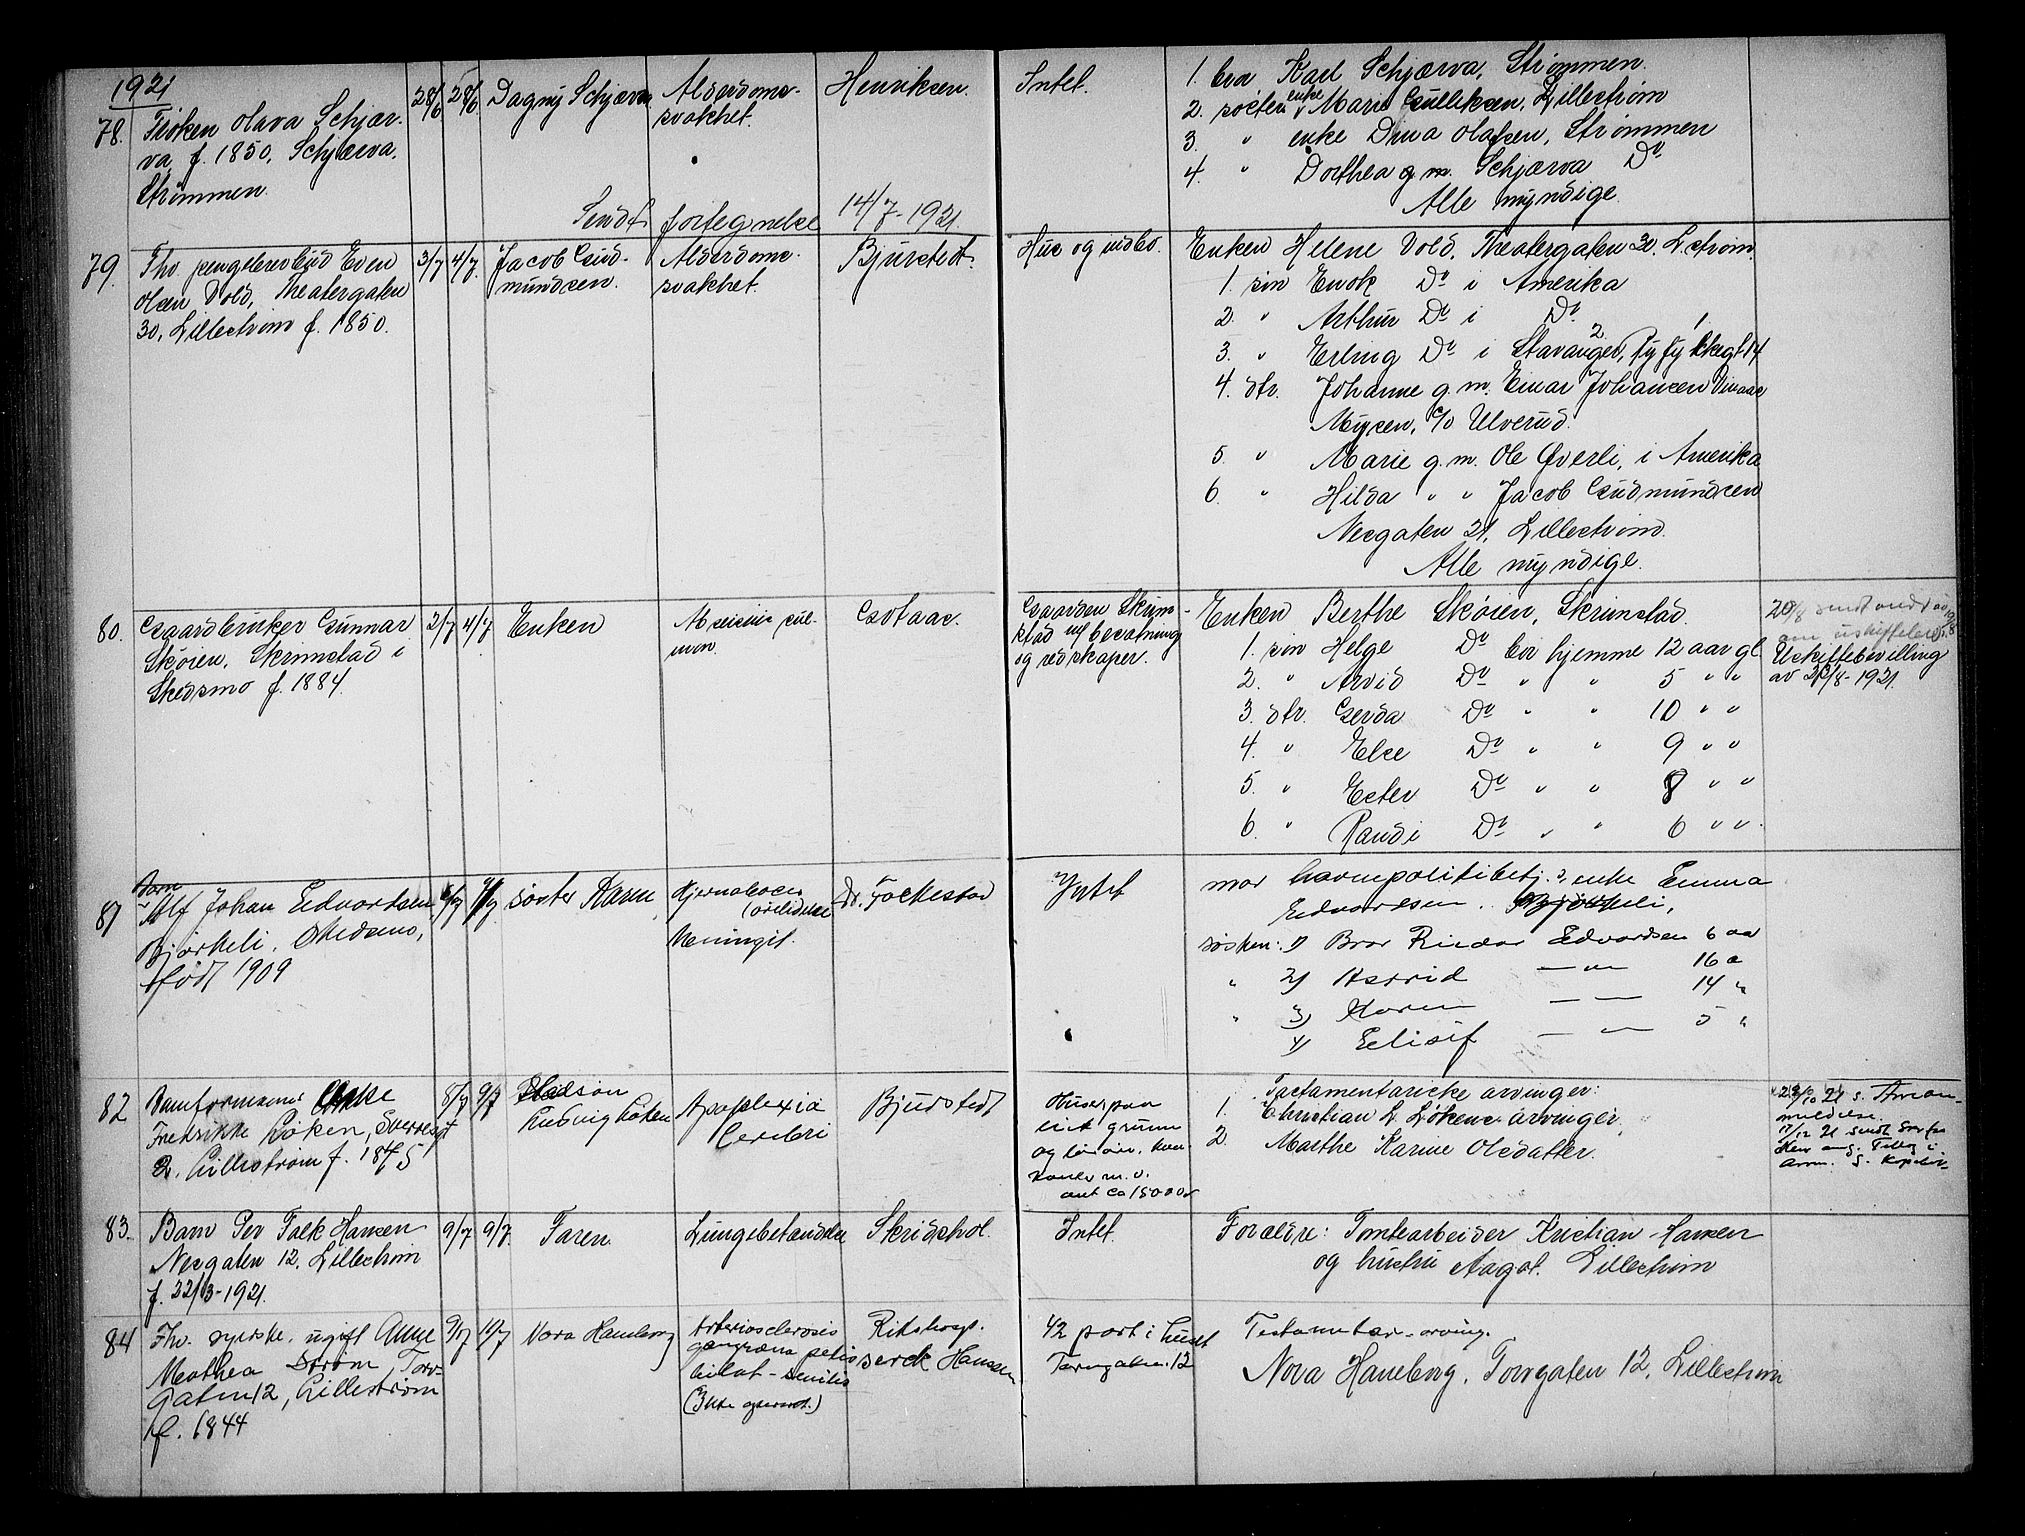 1921
78. Frøken Olava Schjær-
va f. 1850, Schjærva,
Strømmen.
28/6 28/6 Dagny Schjærva
Alderdoms-
svakhet.
Henriksen.
Sendt fortegnelse 14/7-1921.
Intet.
1. bror Karl Schjærva, Strømmen.
2. søster enke Marie Gulliksen, Lillestrøm
3. " enke Dina Olafsen, Strømmen
4. " Dorthea g.m. Schjærva Do
Alle myndige.
79. Fhv. pengebrevbud Even
Olsen Vold, Theatergaten
30, Lillestrøm f. 1850.
3/7 4/7 Jacob Gud-
mundsen.
Alderdoms-
svakhet.
Bjurstedt.
Hus og indbo.
Enken Helene Vold, Theatergaten 30, L.strøm.
1. søn Enok Do i Amerika
2. " Arthur Do i Do
3. " Erling Do i Stavanger,
4. dtr. Johanne g.m. Einar Johansen
Mysen, c/o Ulverud.
5. " Marie g.m. Ole Øverli, i Amerika
6. " Hilda " " Jacob Gudmundsen
Nesgaten 21, Lillestrøm.
Alle myndige.
80. Gaardbruker Gunnar
Skøien, Skrimstad i
Skedsmo f. 1884.
2/7 4/7 Enken
pul-
mon.
Gotaas.
Gaarden Skrim-
stad m/ besætning
og redskaper.
Enken Berthe Skøien, Skrimstad.
1. søn Helge Do bor hjemme 12 aar gl.
2. " Arvid Do " " 5 " "
3. dtr. Gerda Do " " 10 " "
4. " Else Do " " 9 " "
5. " Ester Do " " 8 " "
6. " Randi Do " " 6 " "
20/8 sendt
om uskifte
Uskiftebevilling
av 22/8-1921.
81 Barn
Alf Johan Edvardsen,
Bjørkeli, Skedsmo,
født 1909
søster Karen
Hjerneabsces
(ørelidelse
Meningit.
dr. Fockestad
Intet
mor havnepolitibetj.s enke Emma
Edvardsen,
søsken: 1) Bror Reidar Edvardsen 6 aar
" 2) Astrid — " — 16 "
" 3) Karen — — 14 "
4) Elisif — " — 5 "
82 Damformands enke
Fredrikke Løken, Sverresgt
2, Lillestrøm f. 1845
8/7 9/7 Pladsøn
Ludvig Løken
Apoplexia
Cerebri
Bjurstedt
Hus paa
leiet grunn
og
m.v.
ant ca 15000 kr
Testamentariske arvinger:
1. Christian L. Løkens arvinger,
2. Marthe Karine Olsdatter.
22/10 21 s. Arvean-
meldelse.
17/12 21 sendt
83. Barn Per Falk Hansen
Nesgaten 12, Lillestrøm
f. 22/3-1921.
9/7 9/7. Faren.
Lungebetændelse
Skridshol.
Intet.
Foreldre: Tomtearbeider Kristian Hansen
og hustru Aagot. Lillestrøm
84 Fhv. syerske, ugift Anne
Mathea Strøm, Torv-
gaten 12, Lillestrøm
f. 1844
9/7 10/7 Nora Haneborg
Arteriosclerosis
gangræna pedis
bilat - senilis
(Ikke operert.)
Rikshosp.
Hansen
1/2 part i huset
Torvgaten 12
Testamentar. arving.
Nora Haneborg, Torvgaten 12, Lillestrøm